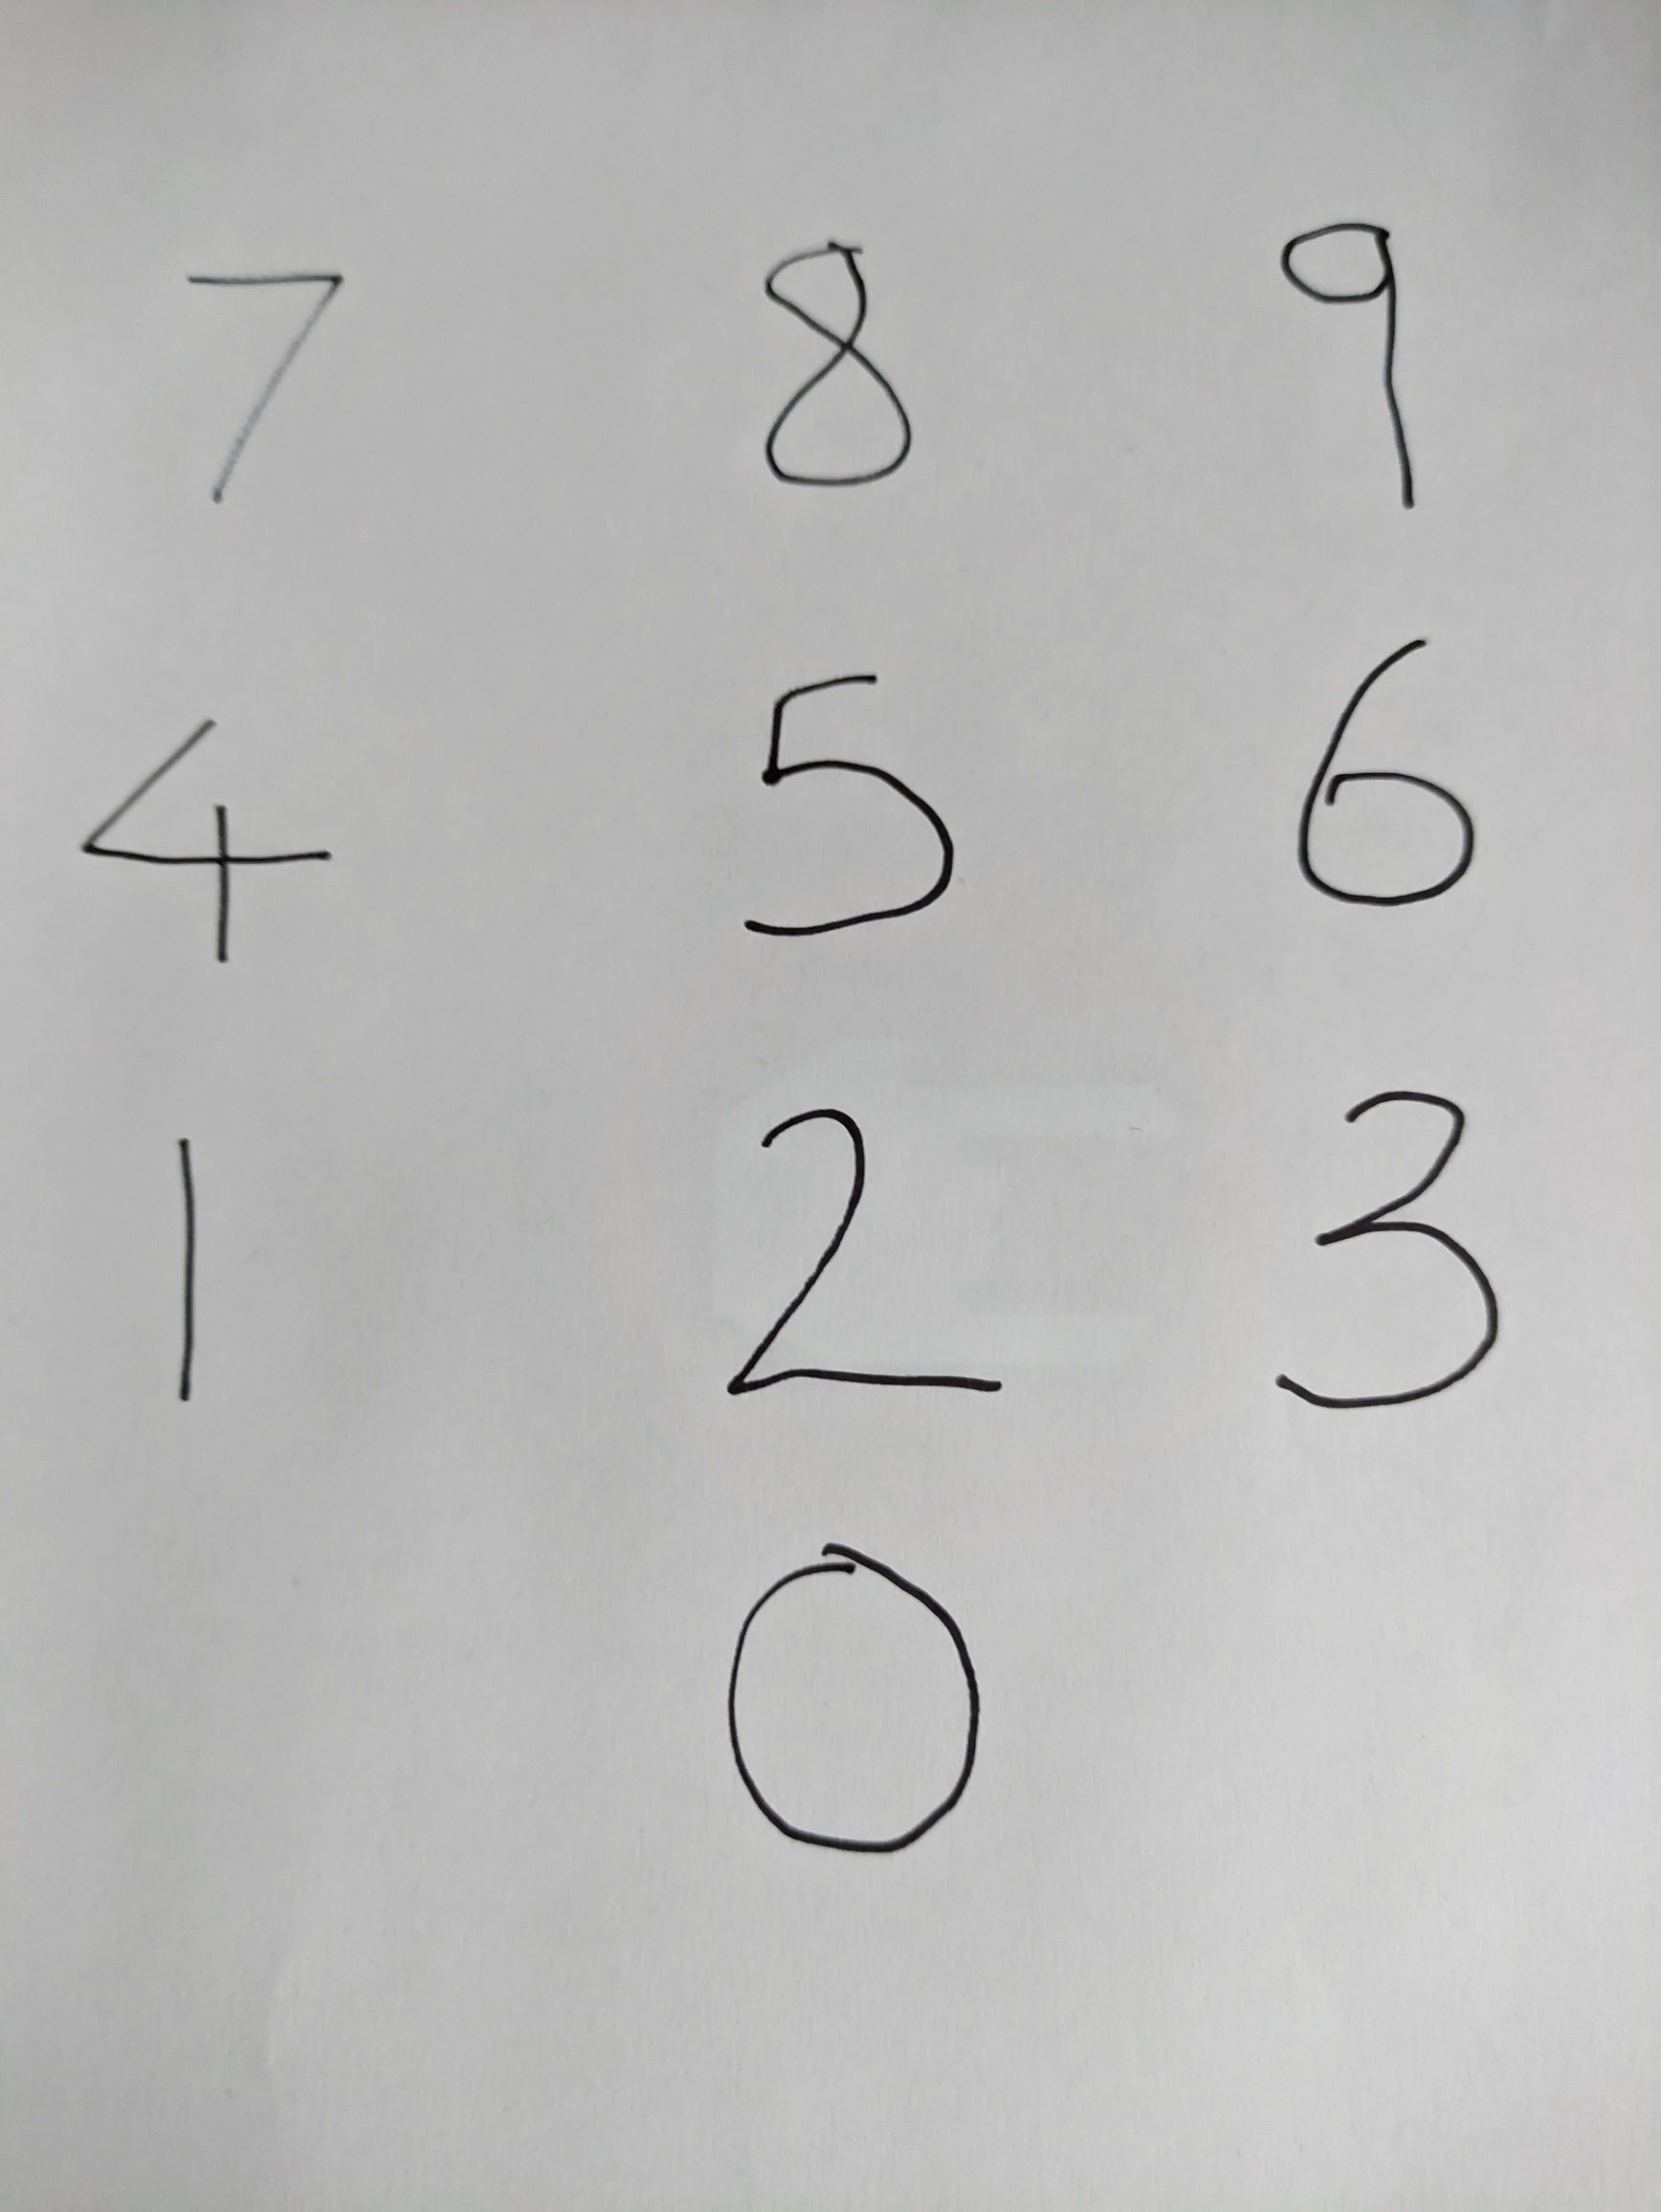 7 8 9
4 5 6
1 2 3
0